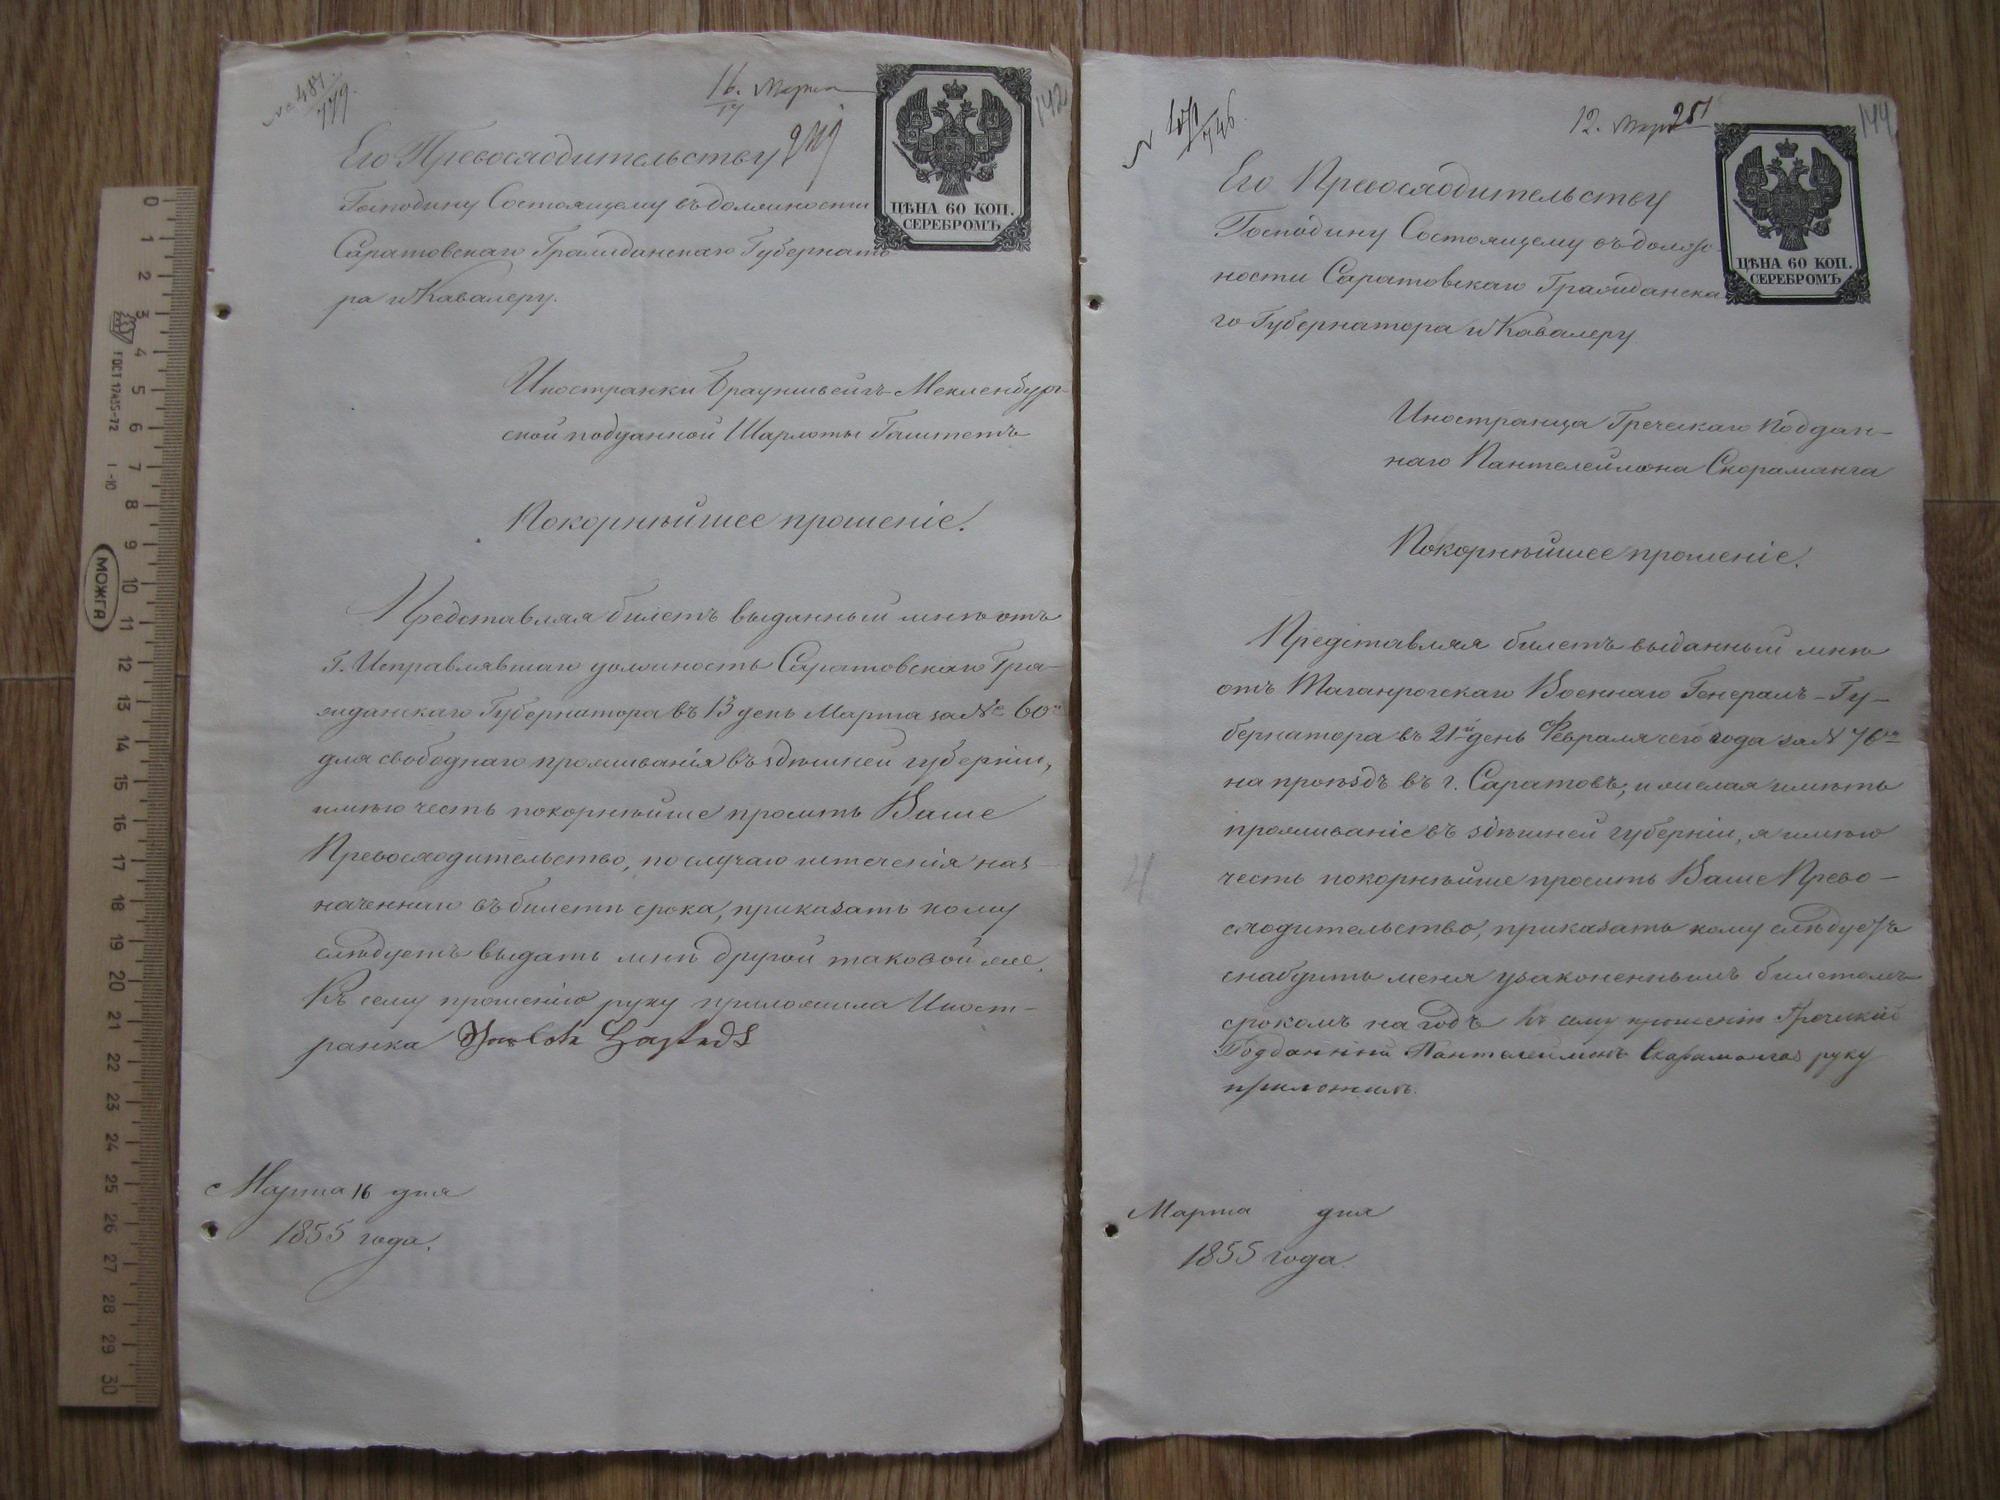 № 487
779
16. Марта
17
142
ЦѢНА 60 КОП.
СЕРЕБРОМЪ
Его Превосходительству
Господину Состоящему въ должности
Саратовскаго Гражданскаго Губернато
ра и Кавалеру.
Иностранки Брауншвейгъ-Мекленбург-
ской подданной Шарлоты Гаштетъ
Покорнѣйшее прошеніе.
Представляя билетъ выданный мнѣ отъ
Г. Исправлявшаго должность Саратовскаго Гра-
жданскаго Губернатора въ 13 день Марта за № 60м
для свободнаго проживанія въ здѣшней губерніи,
имѣю честь покорнѣйше просить Ваше
Превосходительство, по случаю истеченія наз-
наченнаго въ билетѣ срока, приказать кому
слѣдуетъ выдать мнѣ другой таковой же.
Къ сему прошенію руку приложила Иност-
ранка
Марта 16 дня
1855 года.
0 1 2 3 4 5 6 7 8 9 10 11 12 13 14 15 16 17 18 19 20 21 22 23 24 25 26 27 28 29 30
ГОСТ 17435-72
1-10
МОЖГА
746
12. Мар 251
144
ЦѢНА 60 КОП.
СЕРЕБРОМЪ
Его Превосходительству
Господину Состоящему въ долж-
ности Саратовскаго Гражданска
го Губернатора и Кавалеру
Иностранца Греческаго поддан-
наго Пантелеймона Скараманга
Покорнѣйшее прошеніе.
Представляя билетъ выданный мнѣ
отъ Таганрогскаго Военнаго Генералъ-Гу-
бернатора въ 21й день Февраля сего года за № 76м
на проѣздъ въ г. Саратовъ, и желая имѣть
проживаніе въ здѣшней губерніи, я имѣю
честь покорнѣйше просить Ваше Прево-
сходительство, приказать кому слѣдуетъ
снабдить меня узаконеннымъ билетомъ
срокомъ на годъ къ сему прошенію Греческій
Подданный Пантелеймонъ Скараманга руку
приложилъ.
Марта дня
1855 года.